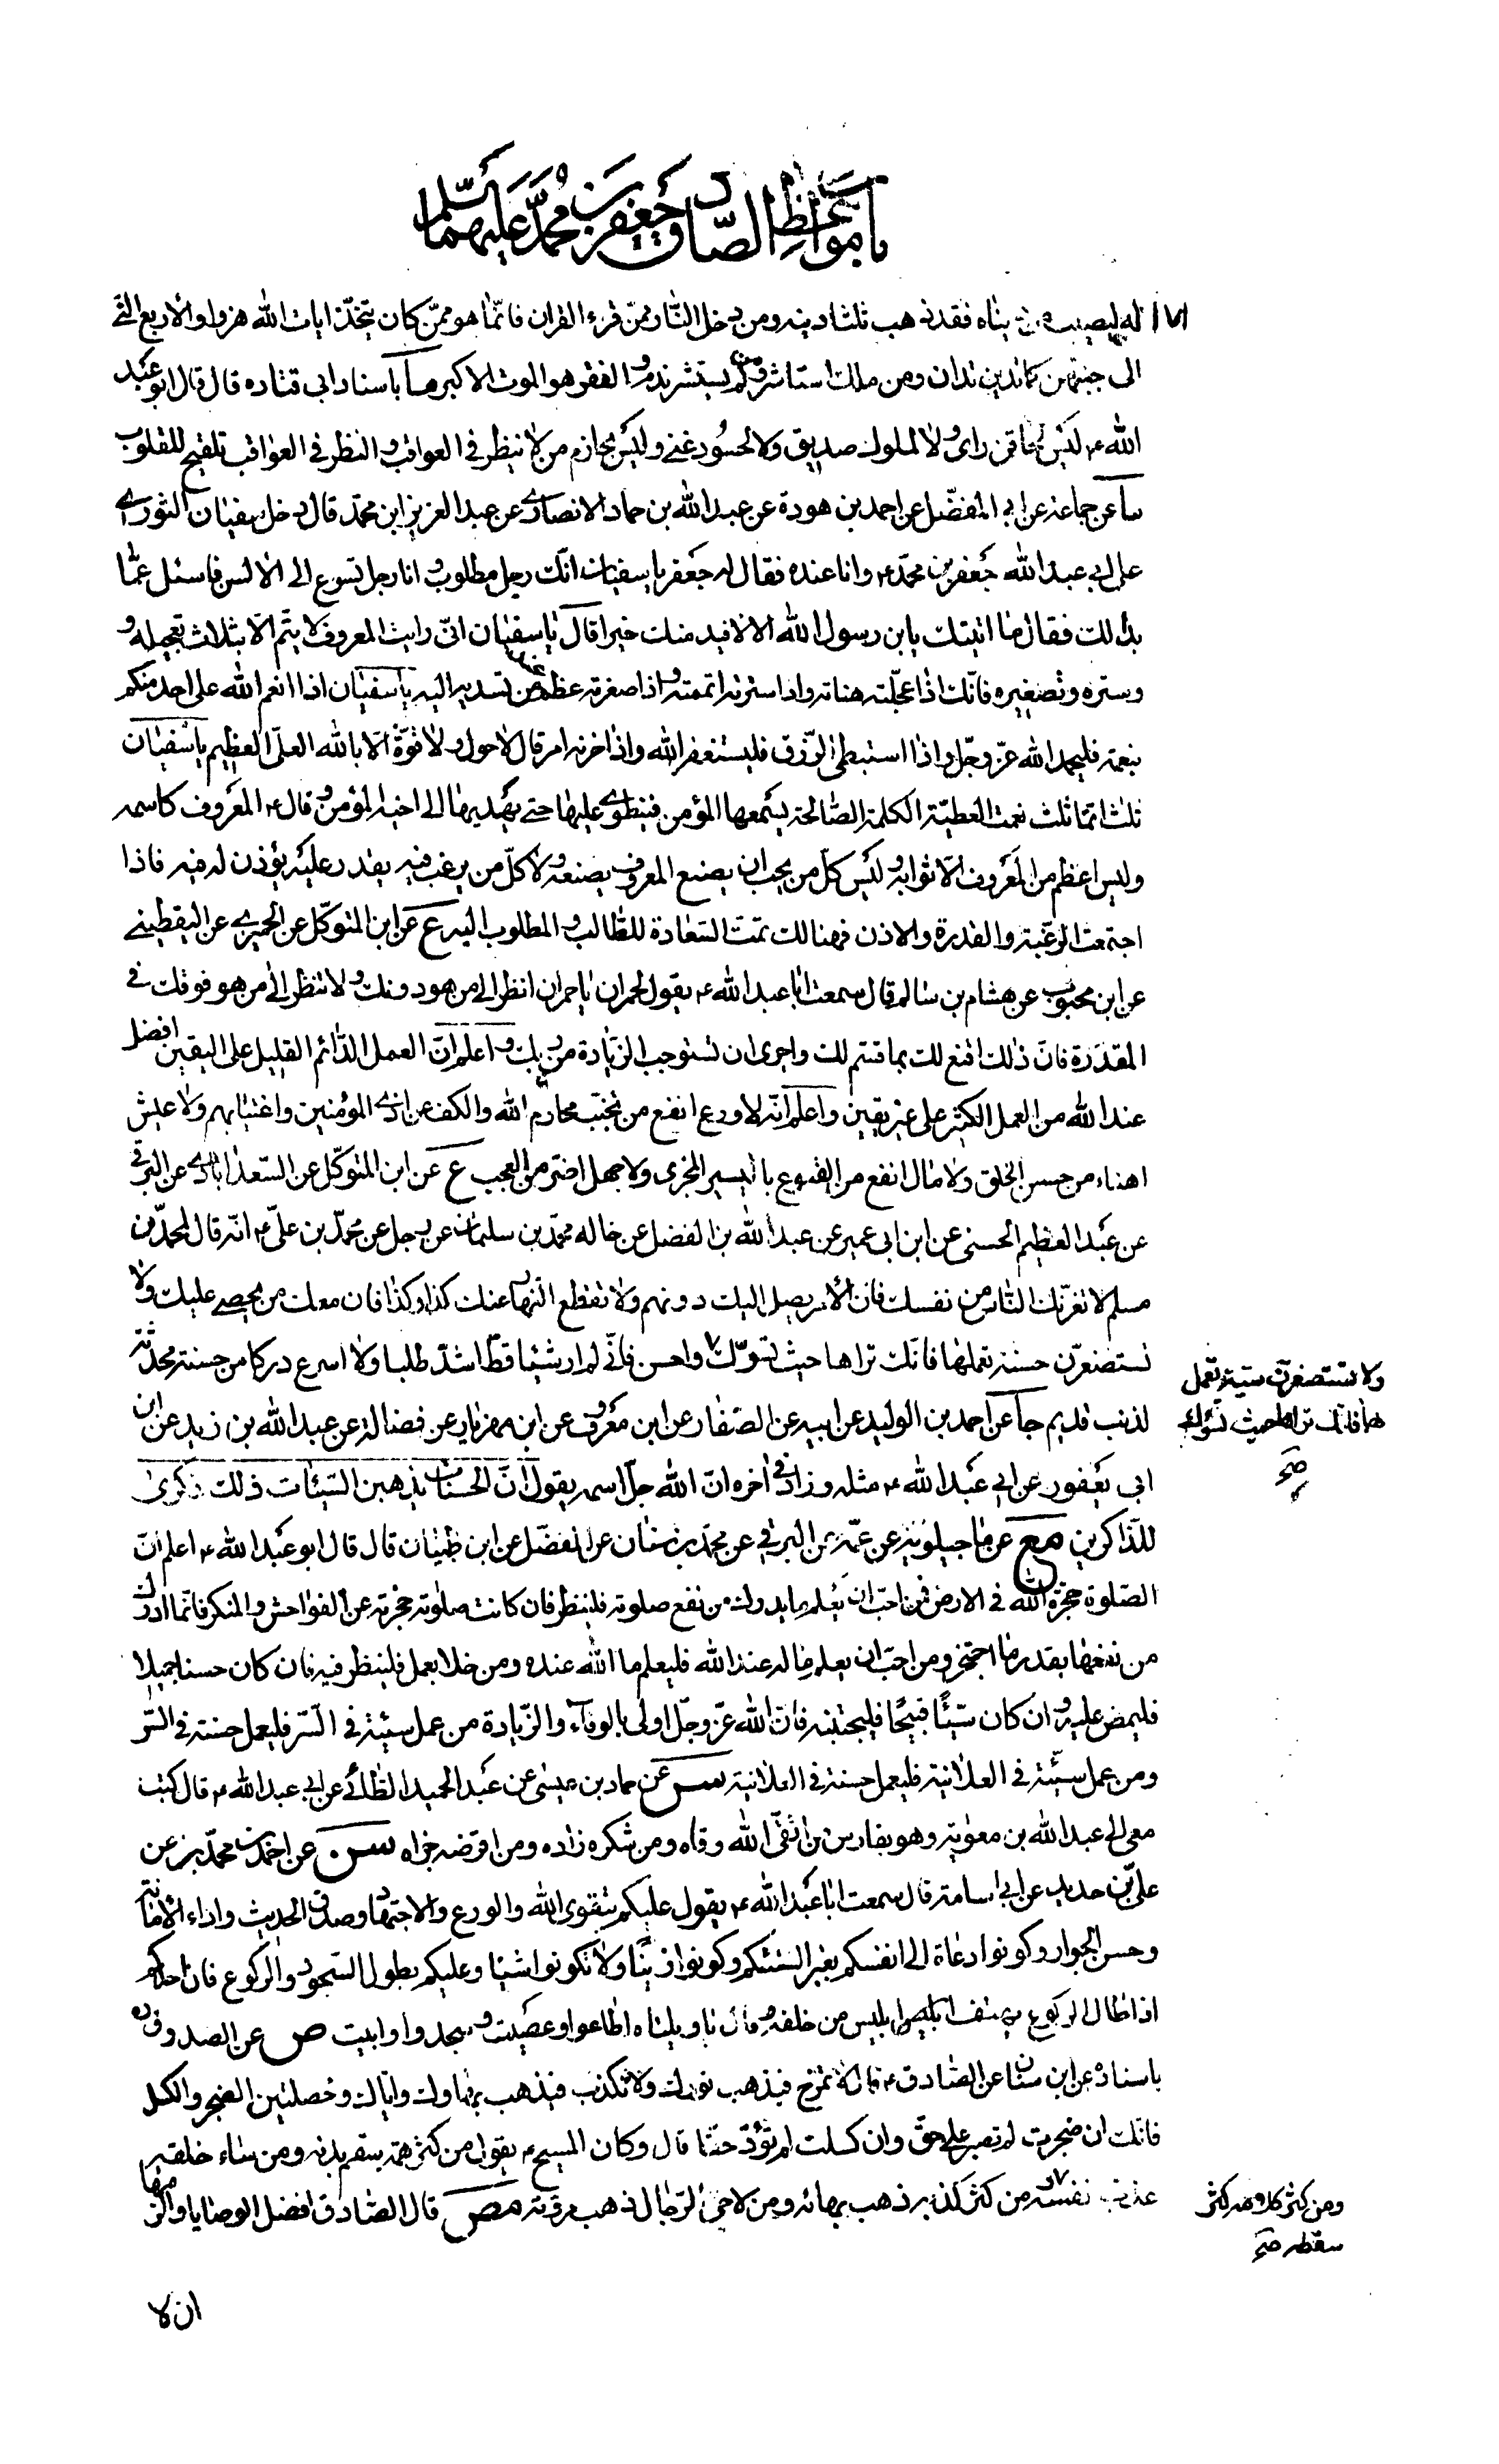 باب مواعظ الصادق جعفر بن محمد عليهما السلام
١٧١ له ليصيب من دنياه فقد ذهب ثلثا دينه ومن دخل النّار ممّن قرء القران فانّما هو ممّن كان يتّخذ ايات الله هزوا والاربع التي
الى جنبهن كما تدين تدان ومن ملك استاثر ومن لم يستشر ندم والفقر هو الموت الاكبر ما باسناد ابي قتاده قال قال ابو عبد
الله ع ليس لحاقن راى ولا لملوك صديق ولا لحسود غنى وليس بحازم من لا ينظر في العواقب والنظر في العواقب تلقيح للقلوب
ما عن جماعة عن ابي المفضّل عن احمد بن هودة عن عبد الله بن حماد الانصاري عن عبد العزيز ابن محمّد قال دخل سفيان الثوري
على ابي عبد الله جعفر بن محمّد ع وانا عنده فقال له جعفر يا سفيان انّك رجل مطلوب وانا رجل تسرع الى الالسن فاسئل عمّا
بدا لك فقال ما اتيتك يا بن رسول الله الا لاستفيد منك خيرا قال يا سفيان انّى رايت المعروف لا يتمّ الّا بثلاث تعجيله و
وستره وتصغيره فانّك اذا عجّلته هناته واذا سترته اتممته واذا صغرته عظم عند من تسديه اليه يا سفيان اذا انعم الله على احد منكم
بنعمة فليحمد الله عزّ وجلّ واذا استبطئ الرّزق فليستغفر الله واذا حزنه امر قال لا حول ولا قوّة الّا بالله العلىّ العظيم يا سفيان
ثلث ايّما ثلث نعمت العطيّة الكلمة الصّالحة يسمعها المؤمن فينطوى عليها حتى يهديها الى اخيه المؤمن وقال ع المعروف كاسمه
وليس اعظم من المعروف الّا ثوابه وليس كلّ من يحب ان يصنع المعروف يصنعه ولا كلّ من يرغب فيه يقدر عليه يؤذن له فيه فاذا
اجتمعت الرّغبة والقدرة والاذن فهنالك تمّت السّعادة للطّالب والمطلوب اليه ع عن ابن المتوكّل عن الحميري عن اليقطيني
عن ابن محبوب عن هشام بن سالم قال سمعت ابا عبد الله ع يقول لحمران يا حمران انظر الى من هو دونك ولا تنظر الى من هو فوقك في
المقدرة فانّ ذلك اقنع لك بما قسم لك واحرى ان تستوجب الزّيادة من ربك واعلم انّ العمل الدّائم القليل على اليقين افضل
عند الله من العمل الكثير على غير يقين واعلم انّه لا ورع انفع من تجنّب محارم الله والكفّ عن اذى المؤمنين واغتيابهم ولا عيش
اهناء من حسن الخلق ولا مال انفع من القنوع باليسير المجزى ولا جهل اضرّ من العجب ع عن ابن المتوكّل عن السّعدابادى عن البرقى
عن عبد العظيم الحسنى عن ابن ابى عمير عن عبد الله بن الفضل عن خاله محمّد بن سليمان عن رجل عن محمّد بن علىّ ع انّه قال لمحمّد بن
مسلم لا تغرّنك النّاس من نفسك فانّ الامر يصل اليك دونهم ولا تقطع النّهار عنك كذا وكذا فانّ معك من يحصى عليك ولا
تستصغرن حسنة تعملها فانّك تراها حيث تسرّك واحسن فانّى لم ار شيئا قطّ اشدّ طلبا ولا اسرع دركا من حسنة محدثة
ولا تستصغرن سيّئة تعمل
بها فانك تراها حيث تسوءك
صح
لذنب قديم جا عن احمد بن الوليد عن ابيه عن الصّفار عن ابن معروف عن ابن مهزيار عن فضالة عن عبد الله بن زيد عن ابن
ابى يعفور عن ابى عبد الله ع مثله وزاد فى اخره انّ الله جلّ اسمه يقول انّ الحسنات يذهبن السّيّئات ذلك ذكرى
للذّاكرين مع عن ماجيلويه عن عمّه عن البرقي عن محمّد بن سنان عن المفضّل عن ابن ظبيان قال قال ابو عبد الله ع اعلم انّ
الصّلوة حجزة الله فى الارض فمن احبّ ان يعلم ما يدرك من نفع صلوته فلينظر فان كانت صلوته حجزته عن الفواحش والمنكر فانّما ادرك
من نفعها بقدر ما احتجز ومن احبّ ان يعلم ما له عند الله فليعلم ما الله عنده ومن خلا بعمل فلينظر فيه فان كان حسنا جميلا
فليمض عليه وان كان سيّئا قبيحا فليجتنبه فانّ الله عزّ وجلّ اولى بالوفاء والزّيادة من عمل سيئة فى السّر فليعمل حسنة فى السّر
ومن عمل سيّئة فى العلانية فليعمل حسنة فى العلانية سن عن حماد بن عيسى عن عبد الحميد الطّائى عن ابى عبد الله ع قال كتب
معى الى عبد الله بن معوية وهو بفارس من اتّقى الله وقاه ومن شكره زاده ومن اقرضه جزاه سن عن احمد بن محمّد عن
علىّ بن حديد عن ابى اسامة قال سمعت ابا عبد الله ع يقول عليكم بتقوى الله والورع والاجتهاد وصدق الحديث واداء الامانة
وحسن الجوار وكونوا دعاة الى انفسكم بغير السنتكم وكونوا زينا ولا تكونوا شينا وعليكم بطول السّجود والرّكوع فانّ احدكم
اذا طال الركوع يهتف ابليس من خلفه وقال يا ويلتاه اطاعوا وعصيت وسجدوا وابيت ص عن الصدوق
باسناده عن ابن سنان عن الصّادق ع قال لا تمزح فيذهب نورك ولا تكذب فيذهب بهاؤك وايّاك وخصلتين الضجر والكسل
فانّك ان ضجرت لم تصبر على حقّ وان كسلت لم تؤدّ حقّا قال وكان المسيح ع يقول من كثر همّه سقم بدنه ومن ساء خلقه
عذّب نفسه ومن كثر كذبه ذهب بهائه ومن لاحى الرّجال ذهب مروّته مص قال الصّادق افضل الوصايا والزمها
ومن كثر كلامه كثر
سقطه صح
ان لا